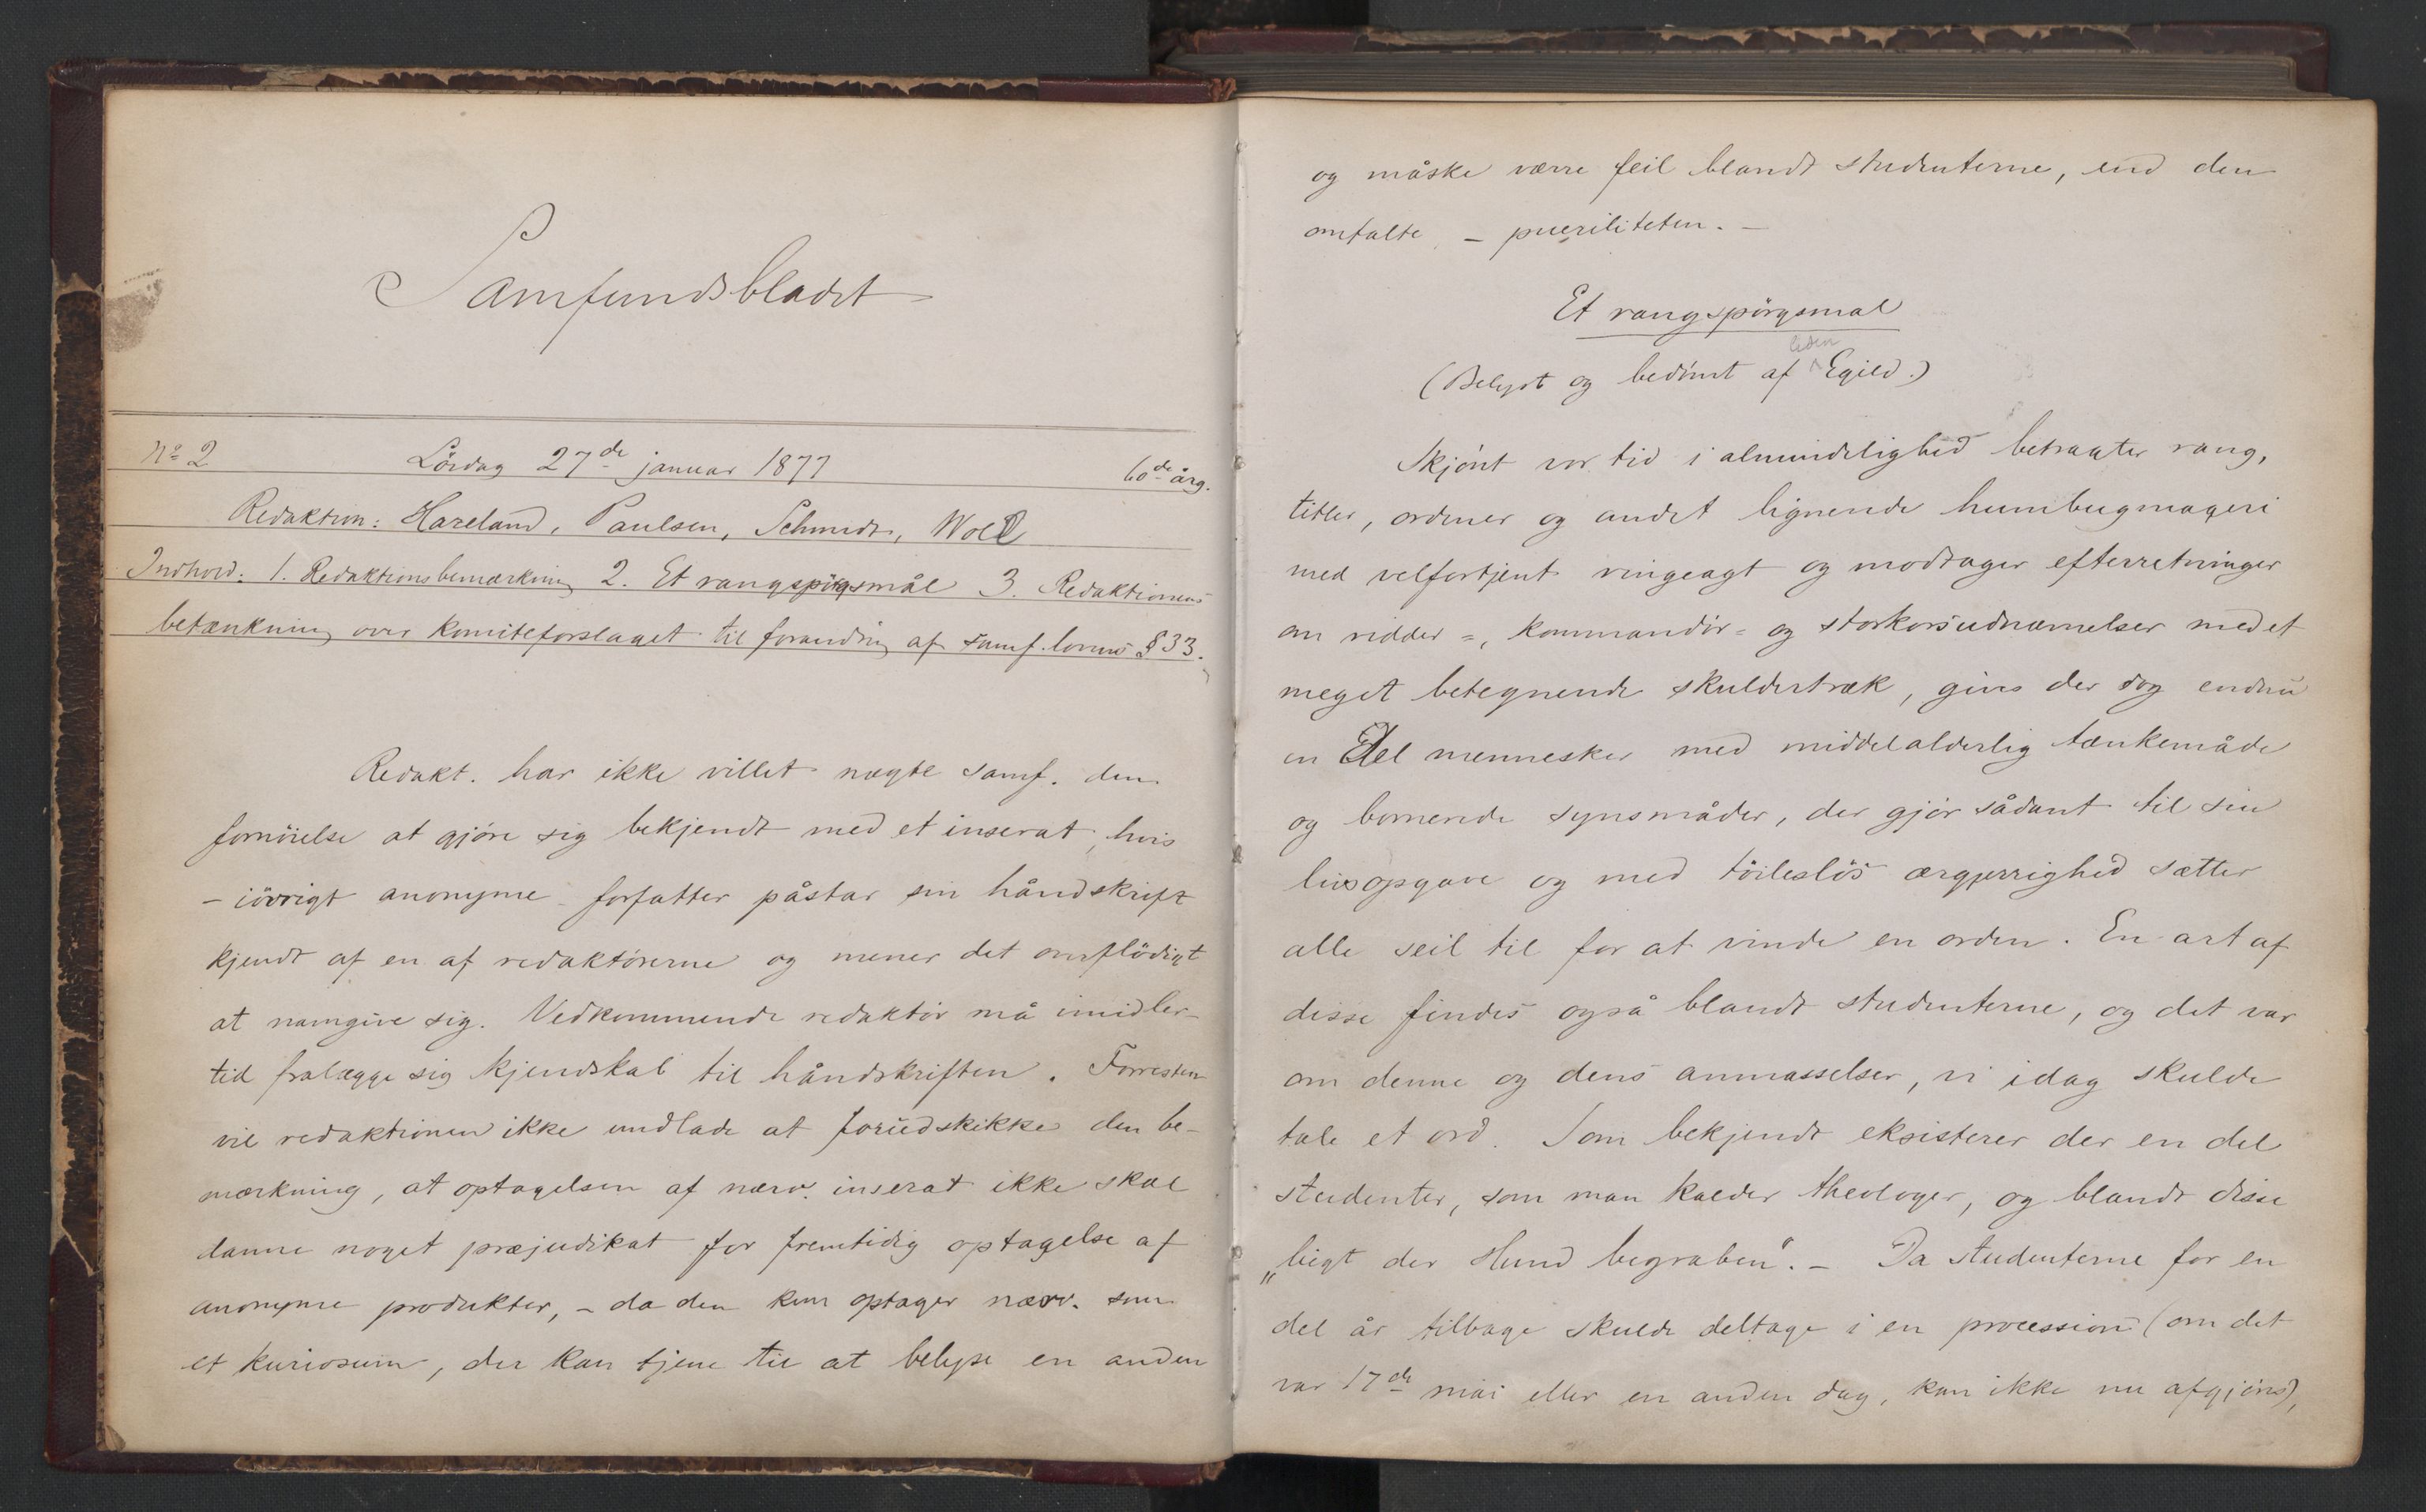 Samfundsbladet
No 2 Lördag 27de januar 1877 60de årg.
Redaktion: Hareland, Paulsen, Schmidt, Woll
Indhold: 1. Redaktionsbemærkning 2. Et rangspörgsmål 3. Redaktionens
betænkning over komiteforslaget til forandring af samf. lovens § 33.
Redakt. har ikke villet nægte samf. den
fornöielse at gjöre sig bekjendt med et inserat, hvis
– iövrigt anonyme – forfatter påstar sin håndskrift
kjendt af en af redaktörerne og mener det overflödigt
at navngive sig. Vedkommende redaktör må imidler-
tid fralægge sig kjendskab til håndskriften. Forresten
vil redaktionen ikke undlade at forudskikke den be-
mærkning, at optagelsen af nærv. inserat ikke skal
danne noget præjudikat for fremtidig optagelse af
anonyme produkter, – da den kun optager nærv. som
et kuriosum, der kan tjene til at belyse en anden
og måske værre feil blandt studenterne, end den
omtalte – pueriliteten. –
Et rangspörgsmal
liden
(Belyst og bedömt af Egild.)
Skjönt vor tid i almindelighed betragter rang,
titler, ordener og andet lignende humbugmageri
med velfortjent ringeagt og modtager efterretninger
om ridder=, kommandör= og storkorsudnævnelser med et
meget betegnende skuldertræk, gives der dog endnu
en Del mennesker med middelalderlig tænkemåde
og bornerede synsmåder, der gjör sådant til sin
livsopgave og med töileslös ærgjerrighed sætter
alle seil til for at vinde en orden. En art af
disse findes også blandt studenterne, og det var
om denne og dens anmasselser, vi idag skulde
tale et ord. Som bekjendt eksisterer der en del
studenter, som man kalder theologer, og blandt disse
„liegt der Hund begraben“. – Da studenterne for en
del år tilbage skulde deltage i en procession (om det
var 17de mai eller en anden dag, kan ikke nu afgjöres),